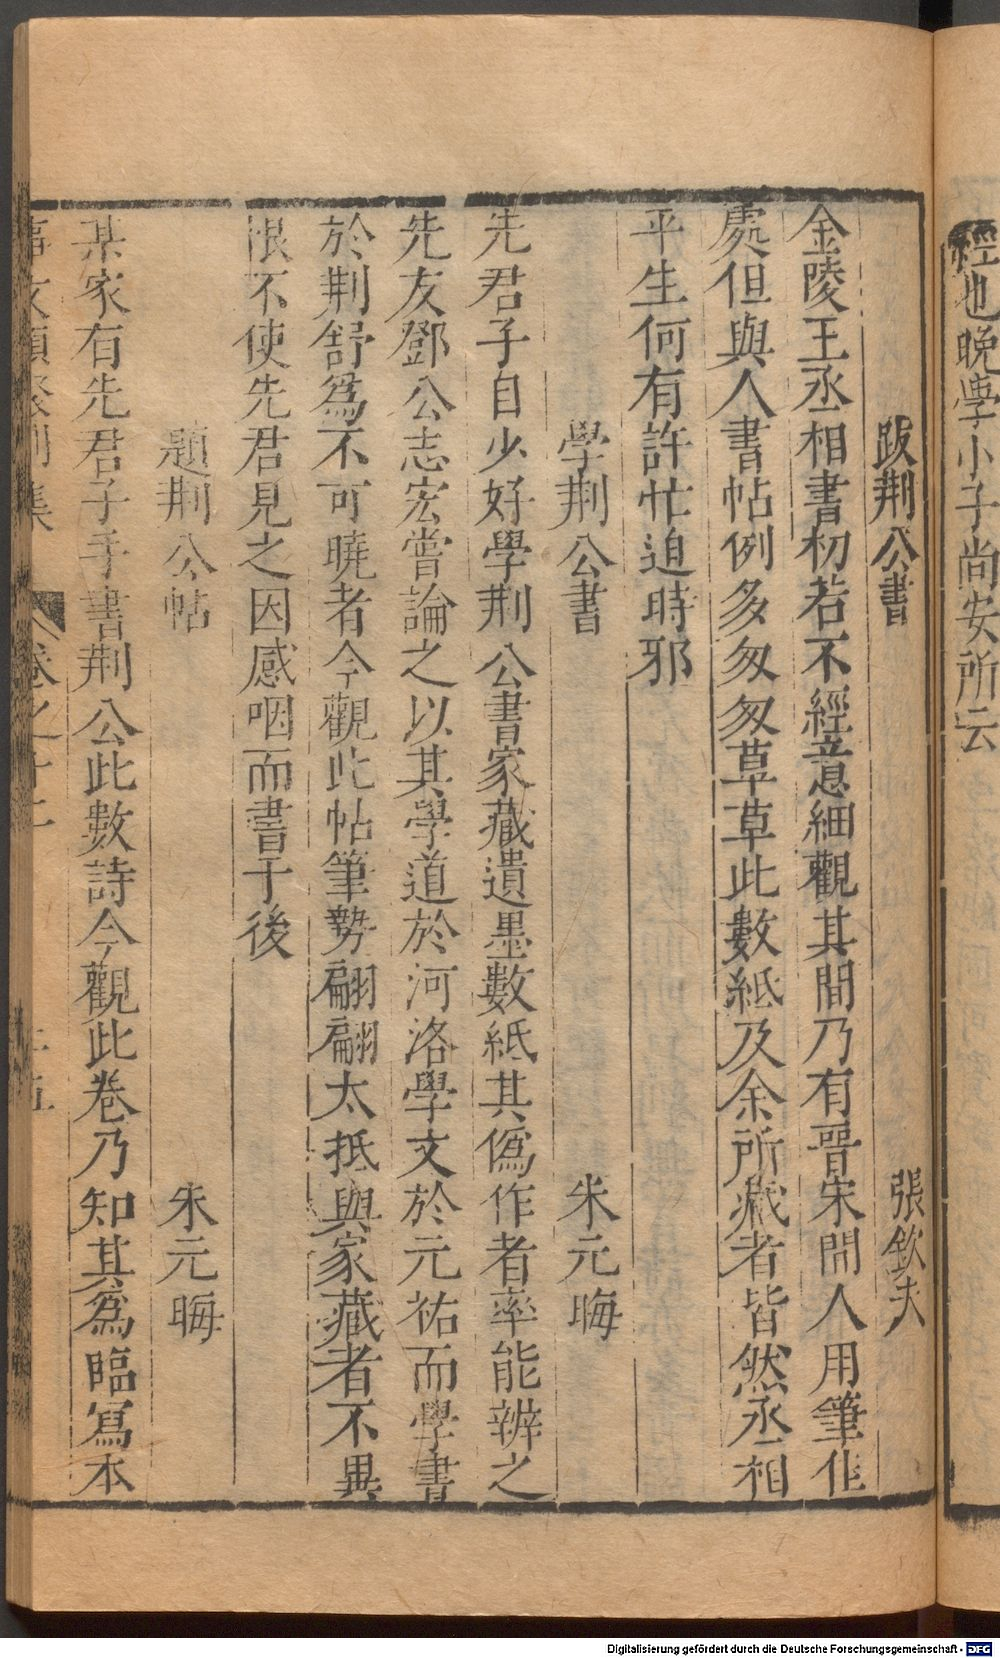 經也晚學小子尚安所云
跋荆公書　張欽夫
金陵王丞相書初若不經意細觀其間乃有晉宋間人用筆佳
處但與人書帖例多匆匆草草此數紙及余所藏者皆然丞相
平生何有許忙迫時邪
學荆公書　朱元晦
先君子自少好學荆公書家藏遺墨數紙其偽作者率能辨之
先友鄧公志宏嘗論之以其學道於河洛學文於元祐而學書
於荆舒爲不可曉者今觀此帖筆勢翩翩太抵與家藏者不異
恨不使先君見之因感咽而書于後
題荆公帖　朱元晦
某家有先君子手書荆公此數詩今觀此卷乃知其爲臨寫本
事文類聚別集 卷之十二
Digitalisierung gefördert durch die Deutsche Forschungsgemeinschaft - DFG